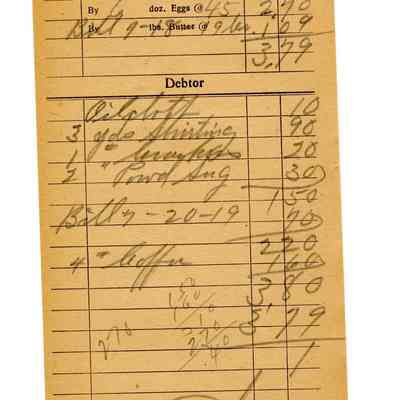 By 6 doz. Eggs @ 45 2.70
By lbs. Butter @ 1.09
3.79
Debtor
Oilcloth 10
3 yds Shirting 90
1 " 20
2 Powd Sug 30
150
Bill 7-20-19 70
220
4 " Coffee 160
380
379
1 1